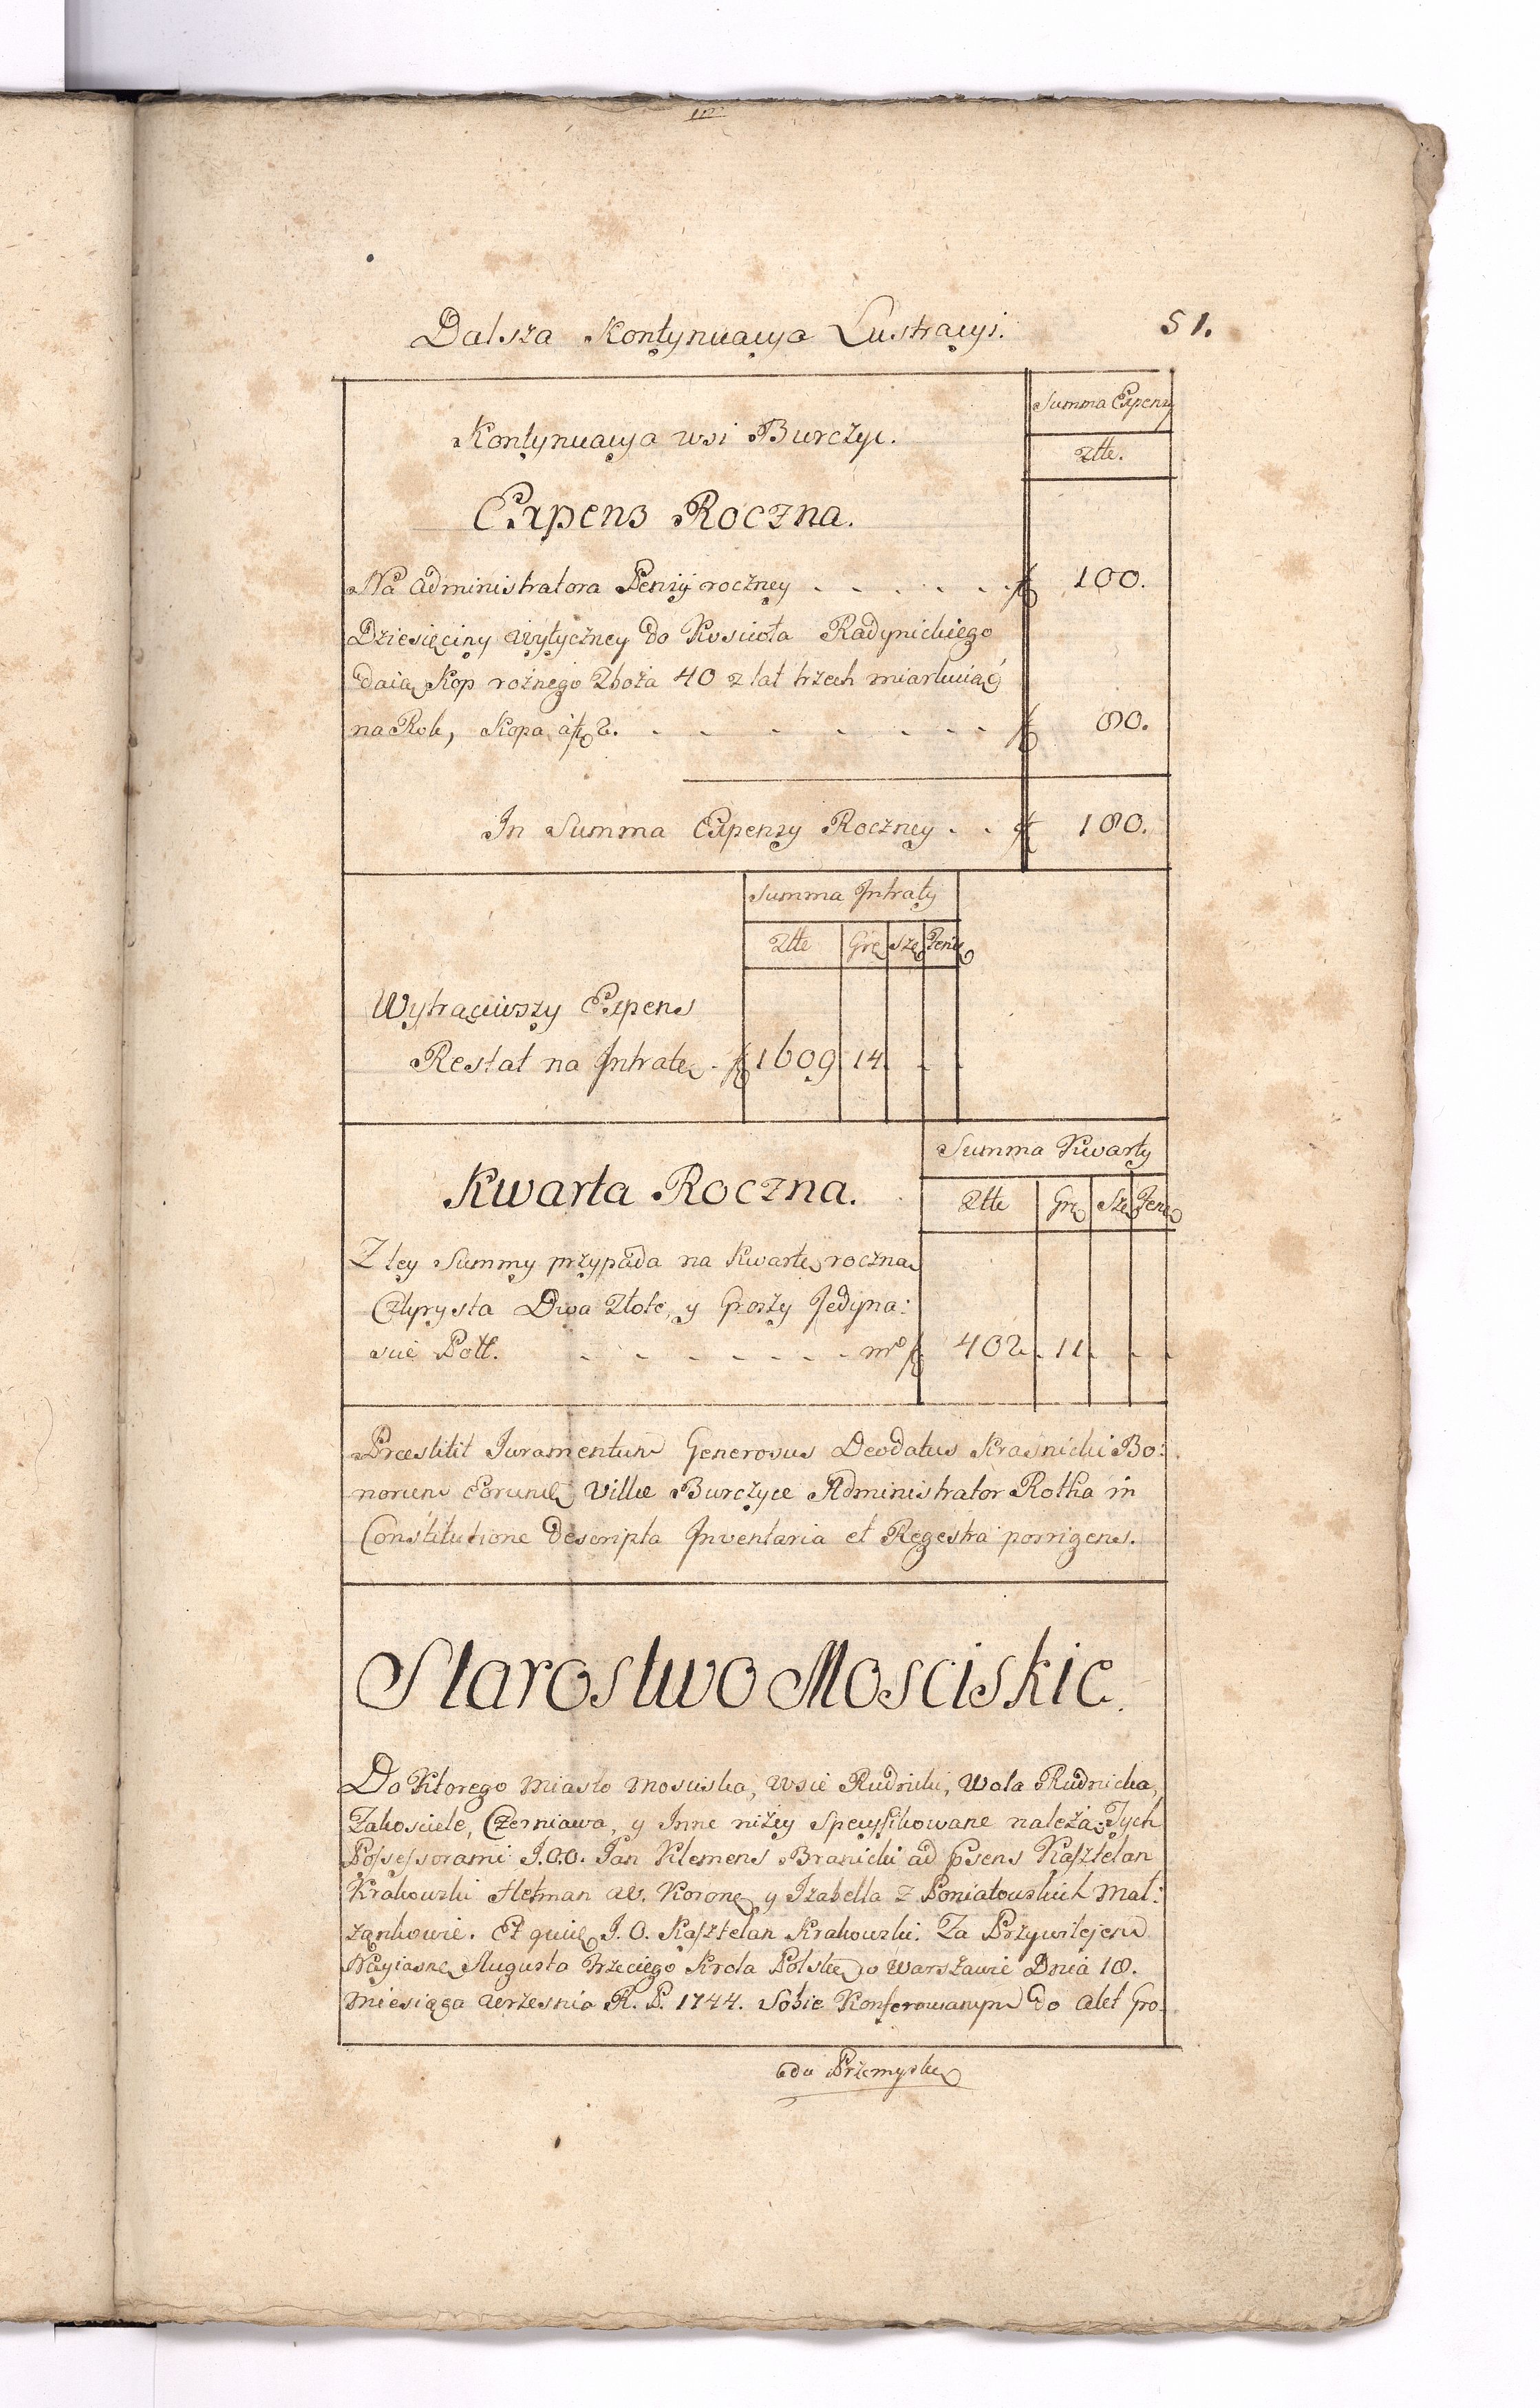 Dalsza Kontynuacya Lustracyi. 51.
Summa Expensy
Kontynuacya wsi Burczyc.
Złłe.
Expens Roczna.
Na administratora Pensyi roczney - - - - - - 100.
Dziesięciny wytyczney do Kościoła Radynickiego
daią Kop rożnego Zboża 40 z lat trzech miarkuiąc
na Rok, Kopa à 2. - - - - - - - - 80.
In Summa Expensy Roczney - - 180.
Summa Intraty
Złłe Grę Szę Penię
Wytrąciwszy Expens
Restat na Intratę - 1609 14 - -
Summa Kwarty
Kwarta Roczna.
Złłe Grę Szę Penę
Z tey Summy przypada na Kwartę roczną
Cztyrysta Dwa Złote, y Groszy Jedyna:
scie Poll. - - - - - - - m° 402 - 11 - -
Præstitit Juramentum Generosus Deodatus Kraśnicki Bo:
norum Eorundę Villæ Burczyce Administrator Rotha in
Constitutione descripta Inventaria et Regestra porrigens.
Starostwo Mosciskie.
Do Ktorego Miasto Mosciska, wsie Rudniki, Wola Rudnicka,
Zakosciele, Czerniawa, y Inne niżey Specyfikowane należą: Tych
Possessorami J.O.O. Jan Klemens Branicki ad psens Kasztelan
Krakowski Hetman W. Koronę y Izabella z Poniatowskich Mał:
żąnkowie. Et quię J. O. Kasztelan Krakowski. Za Przywilejem
Nayiasnę Augusta trzeciego Krola Polskę w Warszawie Dnia 18.
Miesiąca Września R. P. 1744. Sobie Konferowanym do Akt Gro:
du Przemyskę